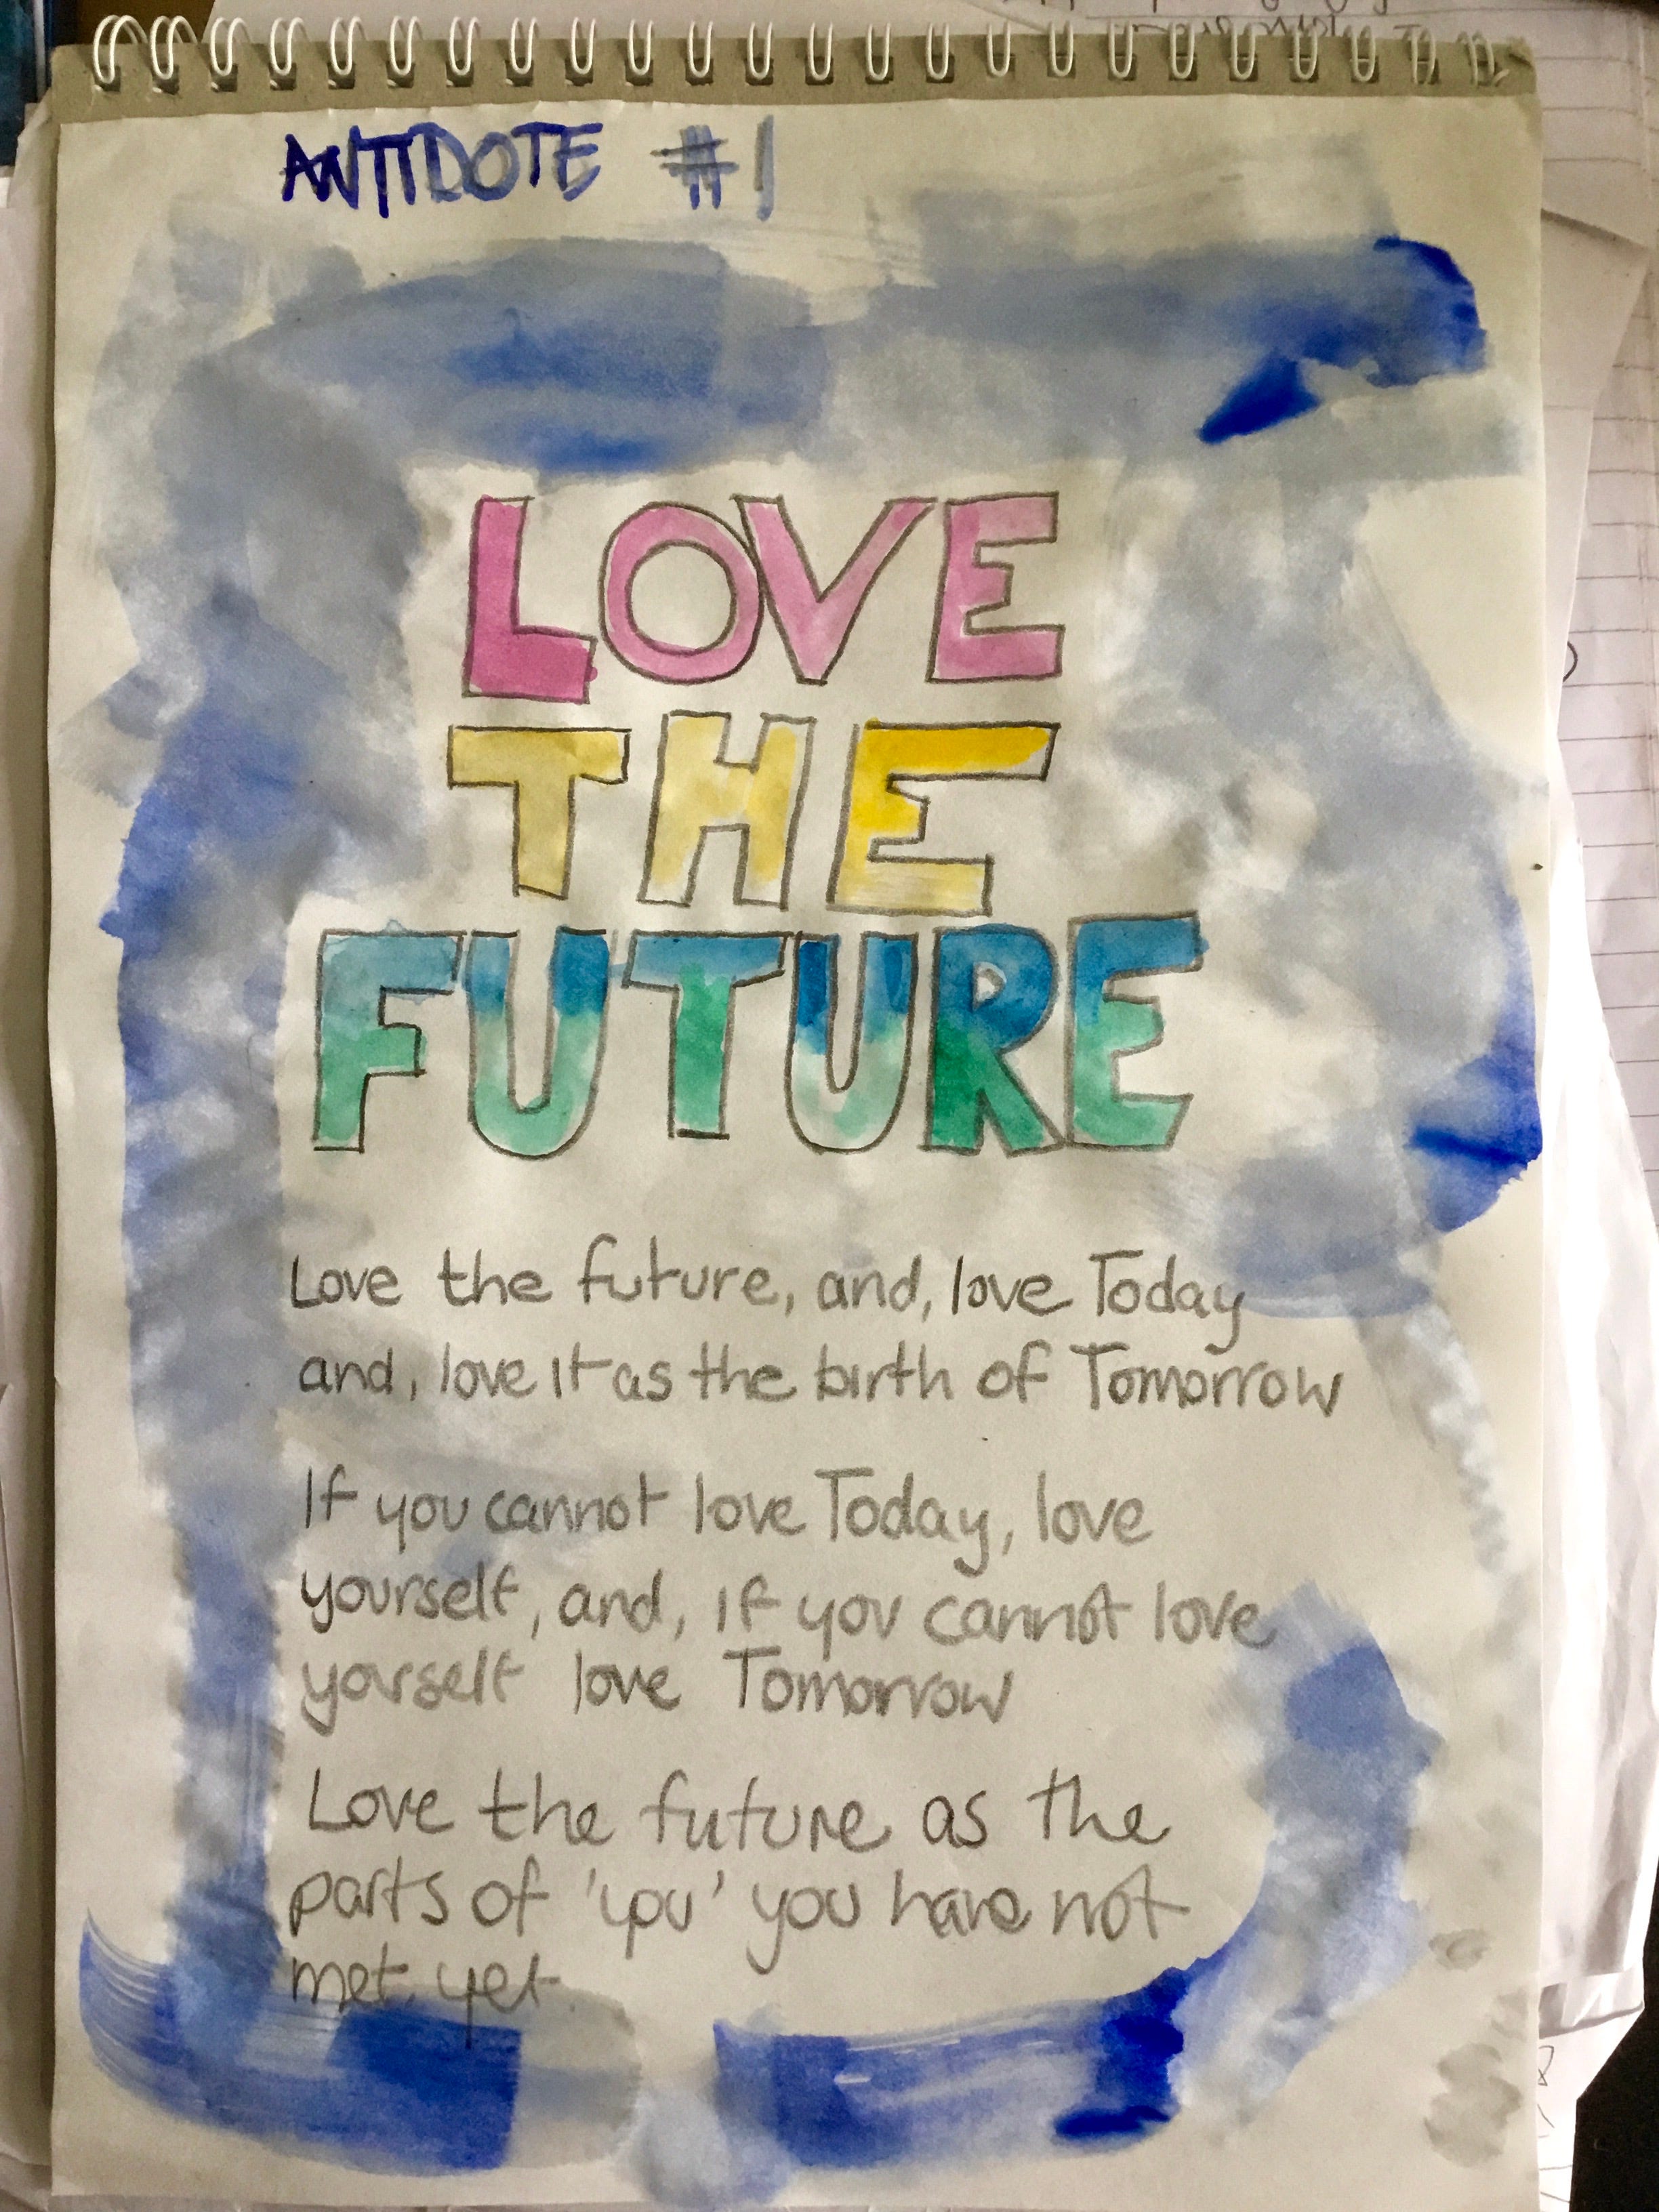 ANTIDOTE #1
LOVE
THE
FUTURE
Love the future, and, love Today
and, love it as the birth of Tomorrow
If you cannot love Today, love
yourself, and, if you cannot love
yourself love Tomorrow
Love the future as the
parts of 'you' you have not
met yet.